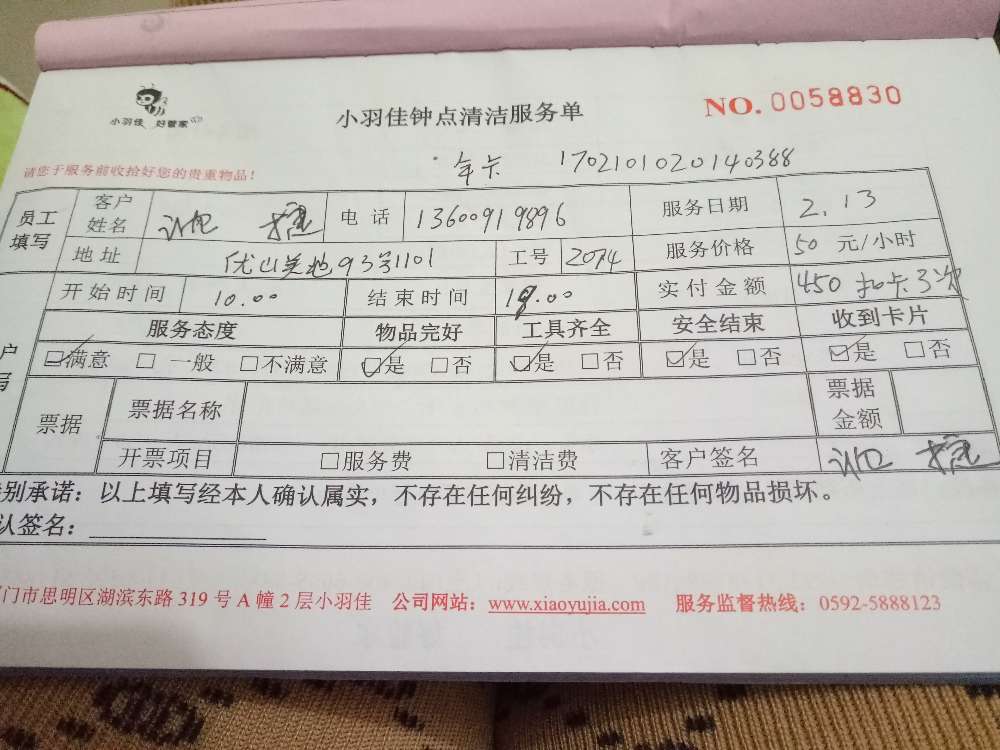 小羽佳 好管家
小羽佳钟点清洁服务单
NO. 0058830
请您于服务前收拾好您的贵重物品！
年卡 1702101020140388
员工填写 客户姓名 电话 13600919896 服务日期 2.13
地址 优山美地93号1101 工号 2074 服务价格 50 元/小时
开始时间 10.00 结束时间 19.00 实付金额 450 扣卡3次
服务态度 物品完好 工具齐全 安全结束 收到卡片
户 ☑满意 □一般 □不满意 ☑是 □否 ☑是 □否 ☑是 □否 ☑是 □否
写 票据 票据名称 票据金额
开票项目 □服务费 □清洁费 客户签名
别承诺：以上填写经本人确认属实，不存在任何纠纷，不存在任何物品损坏。
认签名：
门市思明区湖滨东路 319 号 A 幢 2 层小羽佳 公司网站：www.xiaoyujia.com 服务监督热线：0592-5888123